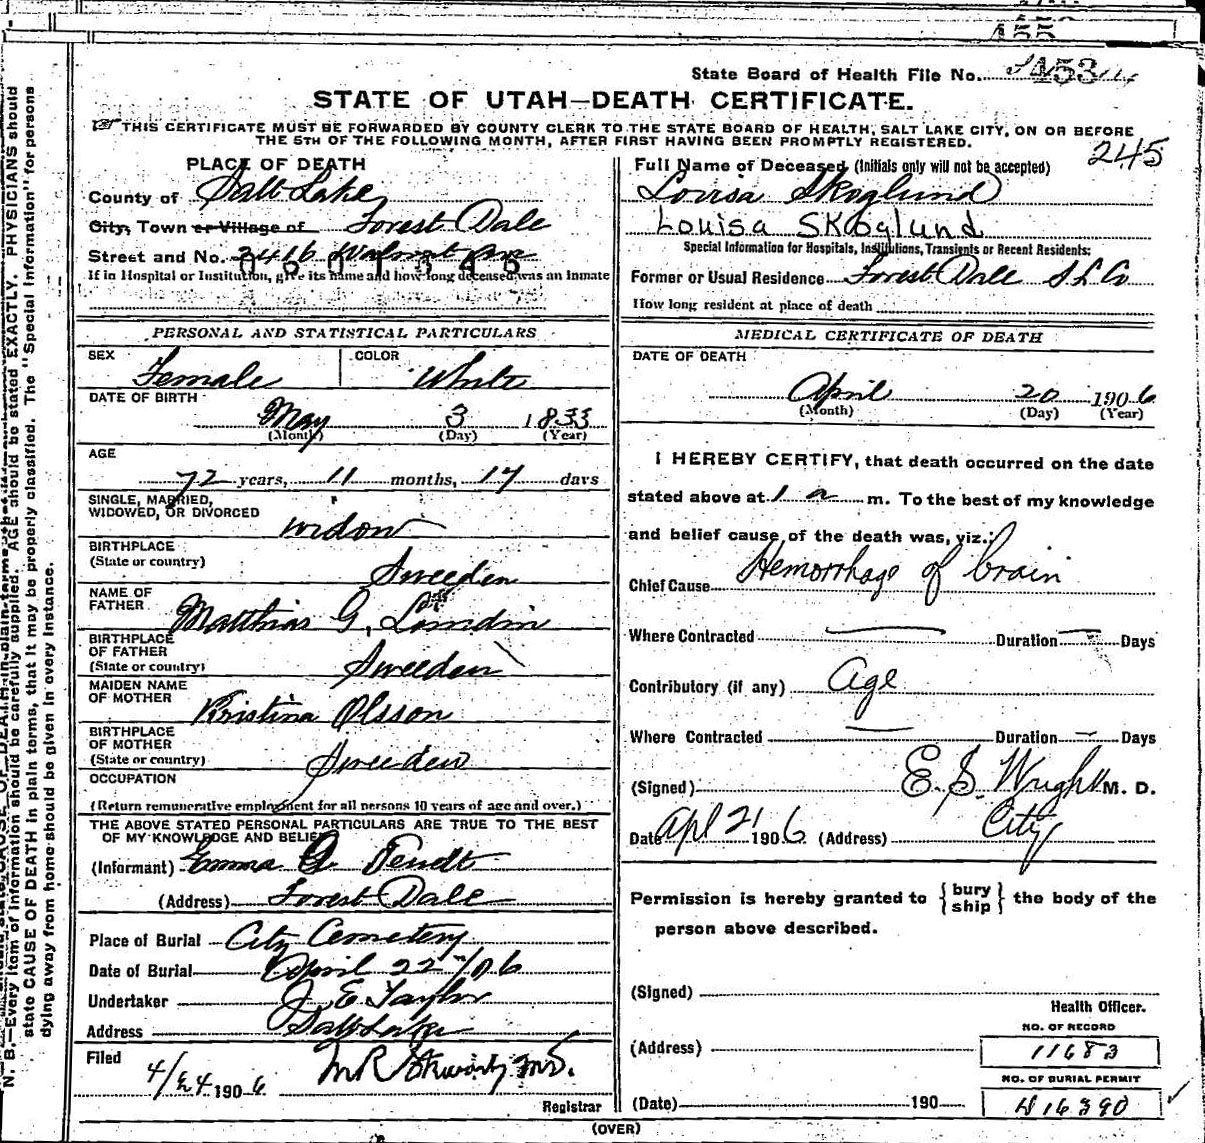 455
State Board of Health File No. 453
STATE OF UTAH—DEATH CERTIFICATE.
THIS CERTIFICATE MUST BE FORWARDED BY COUNTY CLERK TO THE STATE BOARD OF HEALTH, SALT LAKE CITY, ON OR BEFORE
THE 5TH OF THE FOLLOWING MONTH, AFTER FIRST HAVING BEEN PROMPTLY REGISTERED.
245
PLACE OF DEATH
County of Salt Lake
City, Town or Village of Forest Dale
Street and No. 2416 Walnut Ave
If in Hospital or Institution, give its name and how long deceased was an Inmate
PERSONAL AND STATISTICAL PARTICULARS
SEX Female COLOR White
DATE OF BIRTH
May 3 1833
(Month) (Day) (Year)
AGE
72 years, 11 months, 17 days
SINGLE, MARRIED,
WIDOWED, OR DIVORCED widow
BIRTHPLACE
(State or country) Sweeden
NAME OF
FATHER Matthias G. Lundin
BIRTHPLACE
OF FATHER
(State or country) Sweeden
MAIDEN NAME
OF MOTHER Kristina Olsson
BIRTHPLACE
OF MOTHER
(State or country) Sweeden
OCCUPATION
(Return remunerative employment for all persons 10 years of age and over.)
THE ABOVE STATED PERSONAL PARTICULARS ARE TRUE TO THE BEST
OF MY KNOWLEDGE AND BELIEF
(Informant) Emma
(Address) Forest Dale
Place of Burial City Cemetery
Date of Burial April 22 '06
Undertaker J. E. Taylor
Address Salt Lake
Filed
4/24 1906
Registrar
Full Name of Deceased (Initials only will not be accepted)
Louisa Skoglund
Louisa Skoglund
Special Information for Hospitals, Institutions, Transients or Recent Residents:
Former or Usual Residence Forest Dale S L Co
How long resident at place of death
MEDICAL CERTIFICATE OF DEATH
DATE OF DEATH
April 20 1906
(Month) (Day) (Year)
I HEREBY CERTIFY, that death occurred on the date
stated above at 1 a m. To the best of my knowledge
and belief cause of the death was, viz.:
Chief Cause Hemorrhage of brain
Where Contracted — Duration — Days
Contributory (if any) Age
Where Contracted — Duration — Days
(Signed) E. S. Wright M. D.
Date Apl 21 1906 (Address) City
Permission is hereby granted to {bury ship} the body of the
person above described.
(Signed)
Health Officer.
NO. OF RECORD
(Address) 11683
NO. OF BURIAL PERMIT
(Date) 190 16390
(OVER)
N. B.—Every item of information should be carefully supplied. AGE should be stated EXACTLY. PHYSICIANS should
state CAUSE OF DEATH in plain terms, that it may be properly classified. The "Special Information" for persons
dying away from home should be given in every instance.